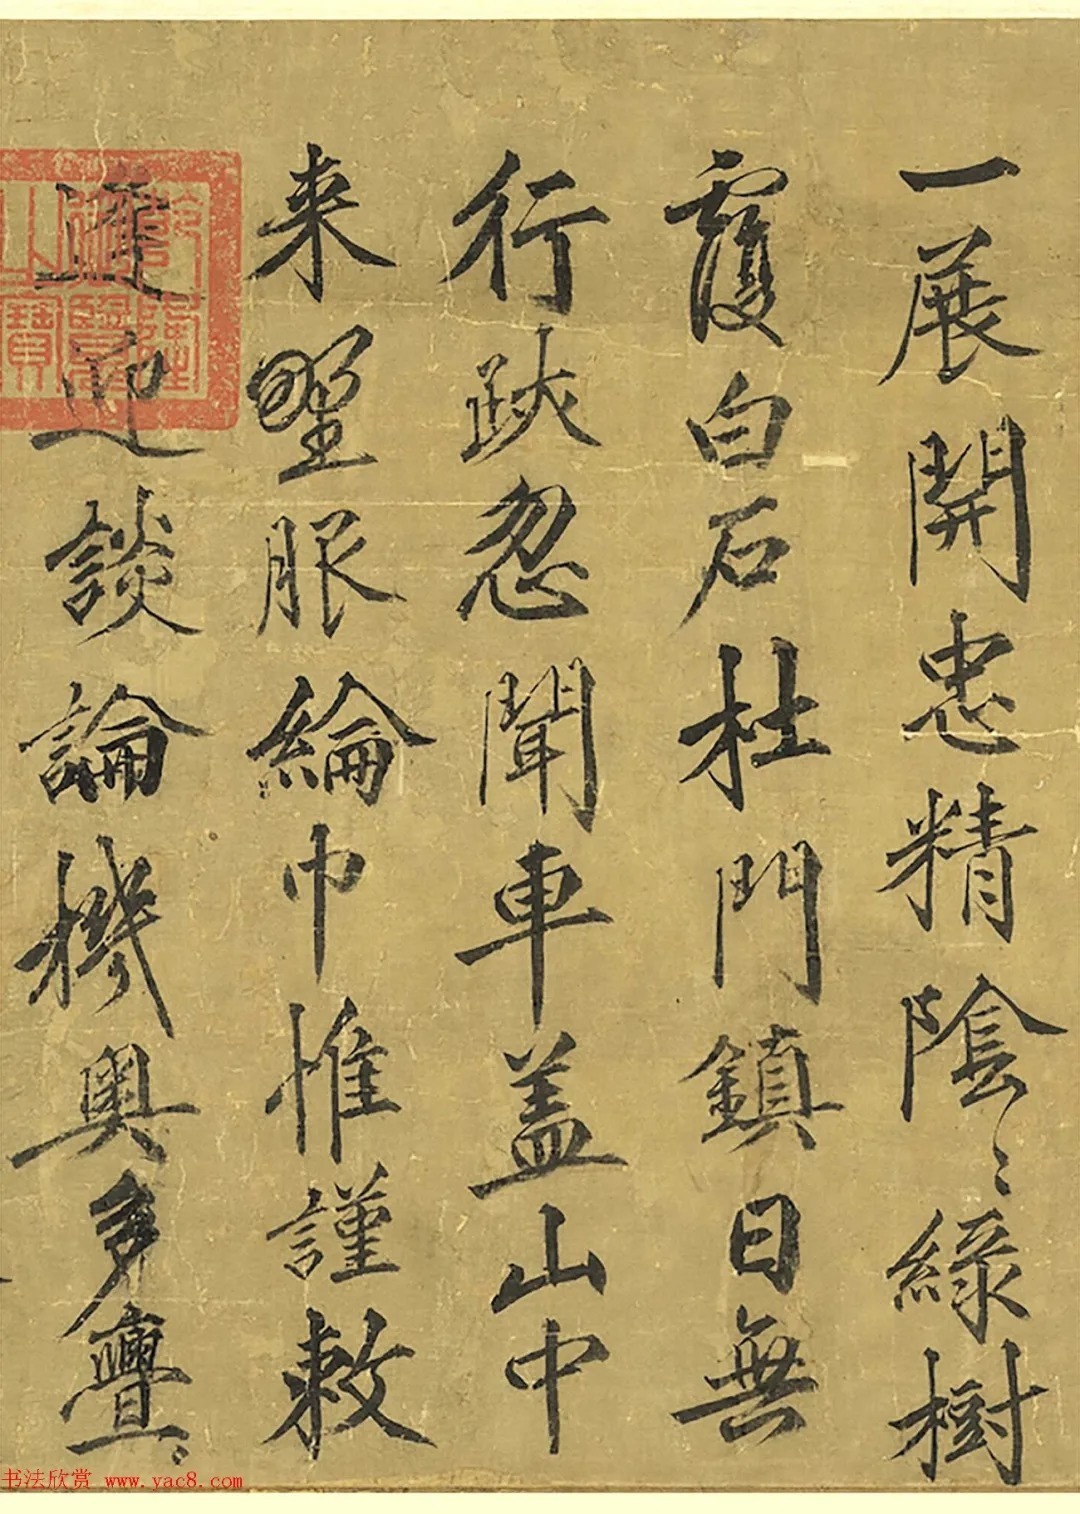 一展開忠精陰〻綠樹
覆白石杜門鎮日無
行跡忽聞車蓋山中
来野服綸巾惟謹敕
迎談論機奧多亹〻
書法欣赏 www.yac8.com